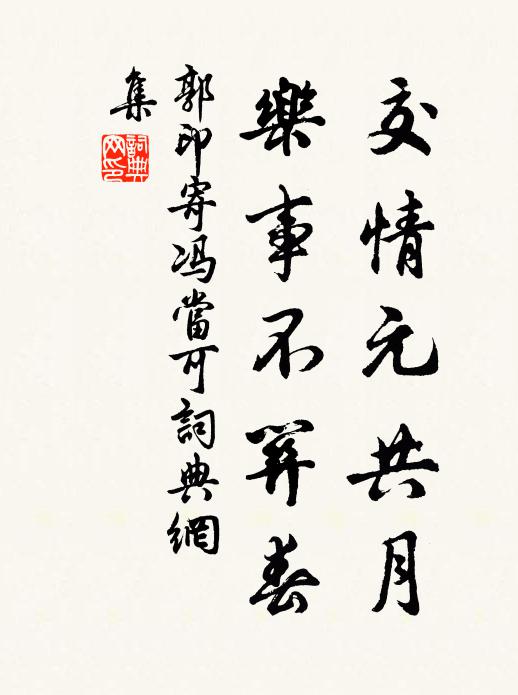 交情元共月
樂事不算春
郭印寄馮當可詞典網
集
詞典
網印